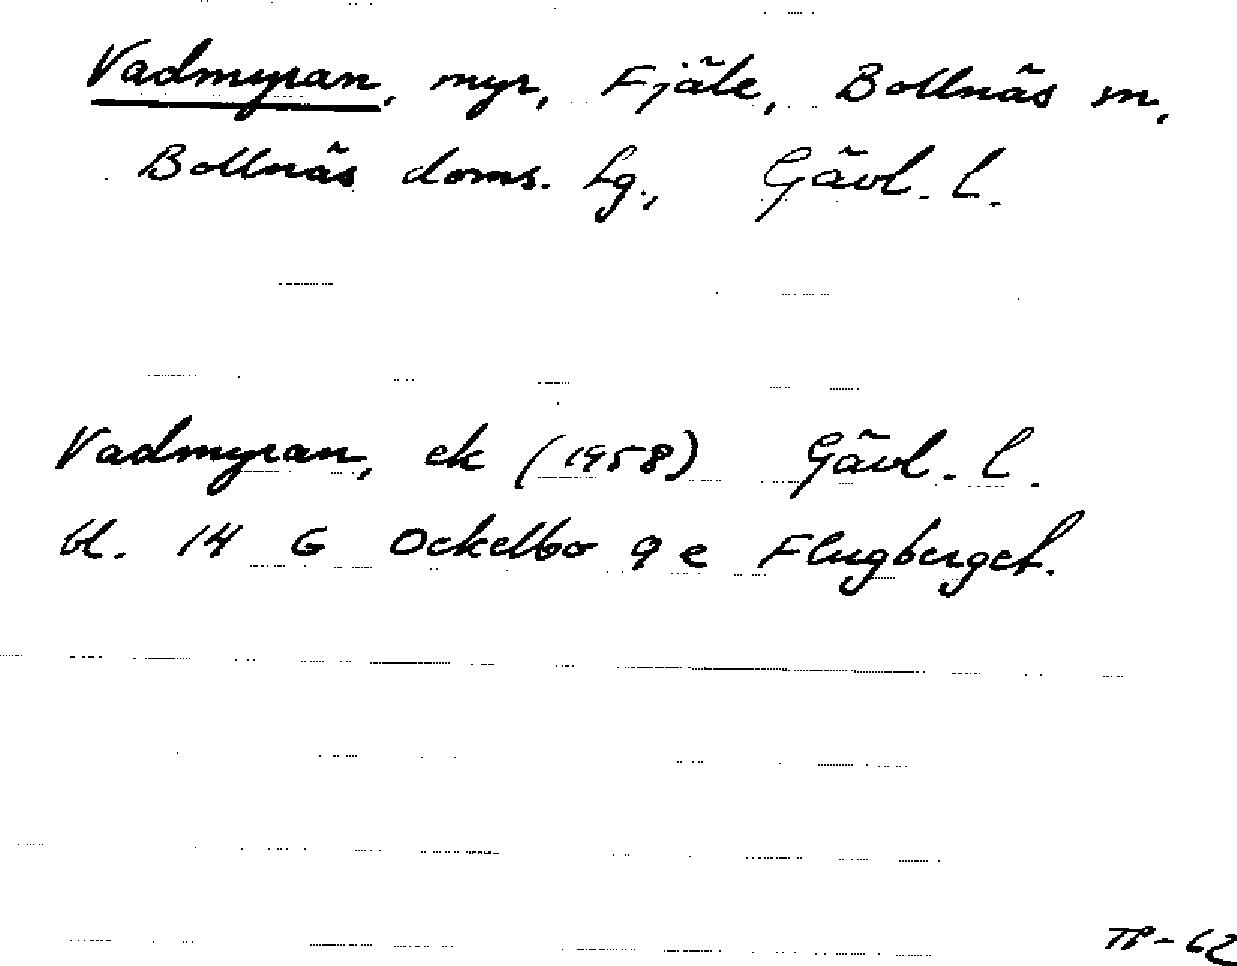 Vadmyran, myr, Fjäle, Bollnäs sn,
Bollnäs doms. hg., Gävl. l.
Vadmyran, ek (1958) Gävl. l.
bl. 14 G Ockelbo 9 e Flugberget.
TP-62